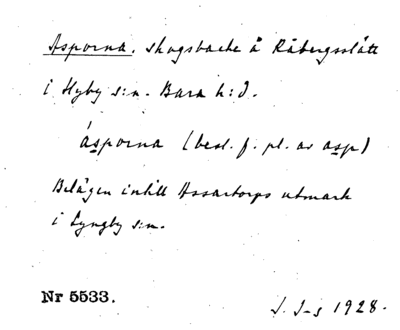 Asporna. skogsbacke å Råbergsslätt
i Hyby s:n. Bara h:d.
ásporna (best. f. pl. av asp)
Belägen intill Assartorps utmark
i Lyngby s:n.
Nr 5533.
J. I-s 1928.